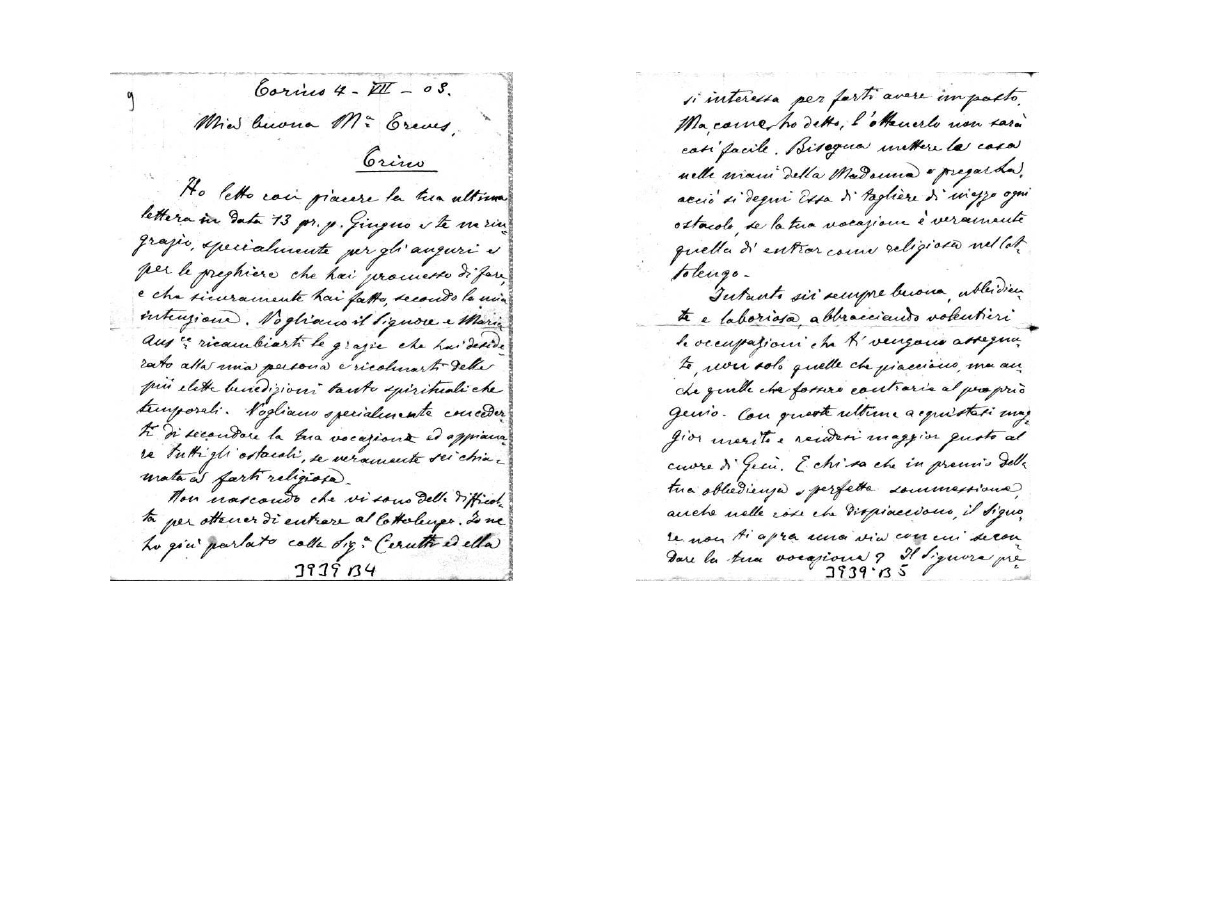 9
Torino 4 - VII - 03.
Mia buona Mª Treves,
Trino
Ho letto con piacere la tua ultima
lettera in data 13 pr. p. Giugno e te ne rin-
grazio, specialmente per gli auguri e
per le preghiere che hai promesso di fare,
e che sicuramente hai fatto, secondo la mia
intenzione. Vogliano il Signore e Maria
Aus.ce ricambiarti le grazie che hai deside-
rato alla mia persona e ricolmarti delle
più elette benedizioni tanto spirituali che
temporali. Vogliano specialmente conceder-
ti di secondare la tua vocazione ed appiana-
re tutti gli ostacoli, se veramente sei chia-
mata a farti religiosa.
Non nascondo che vi sono delle difficol-
tà per ottener di entrare al Cottolengo. Io ne
ho già parlato colla Sig.ª Cerutti ed ella
3939 B4
si interessa per farti avere im posto.
Ma, come ho detto, l'ottenerlo non sarà
così facile. Bisogna mettere la cosa
nelle mani della Madonna e pregarLa,
acciò si degni Essa di togliere di mezzo ogni
ostacolo, se la tua vocazione è veramente
quella di entrar come religiosa nel Cot-
tolengo.
Intanto sii sempre buona, ubbidien-
te e laboriosa, abbracciando volentieri
le occupazioni che ti vengono assegna-
te, non solo quelle che piacciono, ma an-
che quelle che fossero contrarie al proprio
genio. Con queste ultime acquistasi mag-
gior merito e rendesi maggior gusto al
cuore di Gesù. E chi sa che in premio della
tua obbedienza e perfetta sommessione,
anche nelle cose che dispiacciono, il Signo-
re non ti apra una via con cui secon-
dare la tua vocazione? Il Signore pre-
3939 B 5